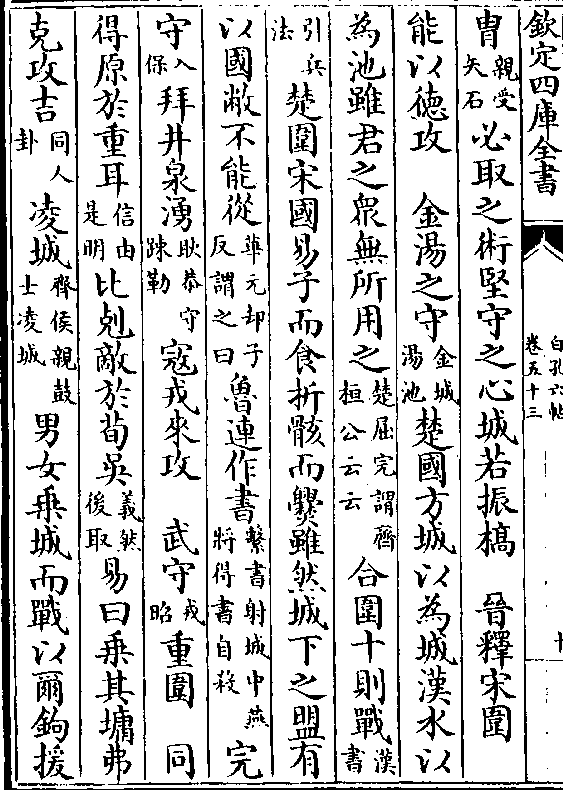 欽定四庫全書
白孔六帖
卷五十三
十
冑親受矢石必取之術堅守之心城若振槁 晉釋宋圍
能以德攻 金湯之守金城湯池楚國方城以為城漢水以
為池雖君之衆無所用之楚屈完謂齊桓公云云 合圍十則戰漢書
引兵法 楚圍宋國易子而食折骸而爨雖然城下之盟有
以國敝不能從華元却子反謂之曰 魯連作書繫書射城中燕將得書自殺 完
守入保 拜井泉湧耿恭守踈勒 寇戎來攻 武守戎昭 重圍 同
得原於重耳信由是明 比剋敵於荀吳義然後取 易曰乗其墉弗
克攻吉同人卦 凌城齊侯親鼓士凌城 男女乗城而戰以爾鉤援